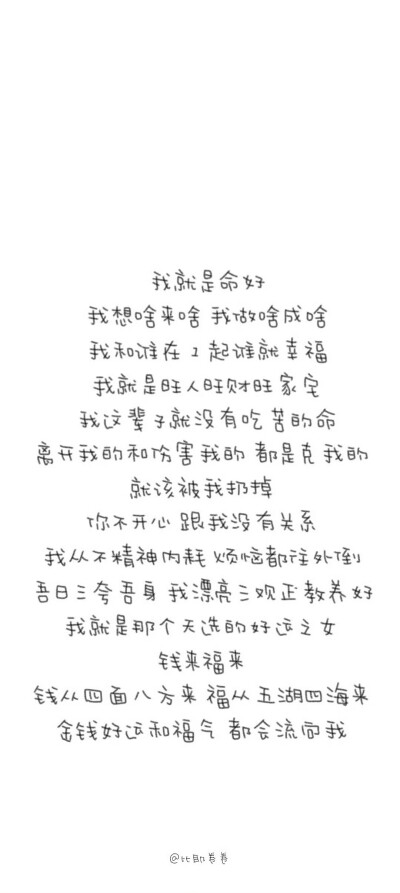 我就是命好
我想啥来啥 我做啥成啥
我和谁在1起谁就幸福
我就是旺人旺财旺家宅
我这辈子就没有吃苦的命
离开我的和伤害我的 都是克我的
就该被我扔掉
你不开心 跟我没有关系
我从不精神内耗 烦恼都往外倒
吾日三夸吾身 我漂亮三观正教养好
我就是那个天选的好运之女
钱来福来
钱从四面八方来 福从五湖四海来
金钱好运和福气 都会流向我